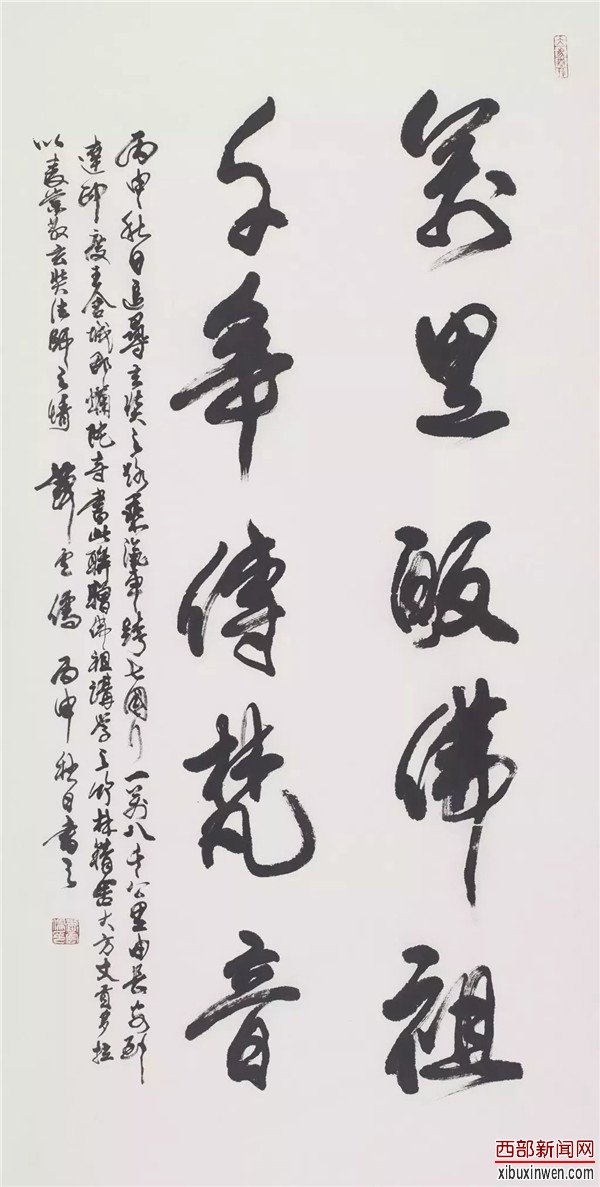 萬里皈佛祖
千年傳梵音
丙申秋日追尋玄奘之路乘滊車跨七國行一萬八千公里由長安到
達印度王舍城那爛陀寺書此聯贈佛祖講學之竹林精舍大方丈貢多拉
以表崇敬玄奘法師之情 薛雲儒 丙申秋日書之
西部新闻网
xibuxinwen.com